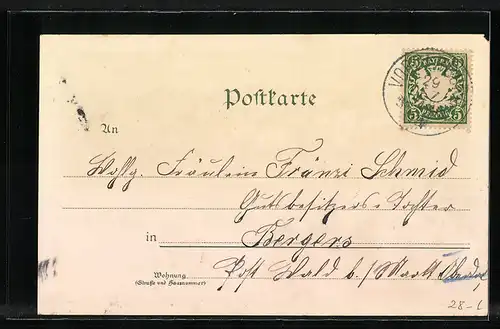 5 5
29
5 5
Postkarte
An
Wohlg. Fräulein Fränzi Schmid
Gutsbesitzers-Tochter
in Bergers
Wohnung
(Straße und Hausnummer)
Post Wald b./ Markt
28-1